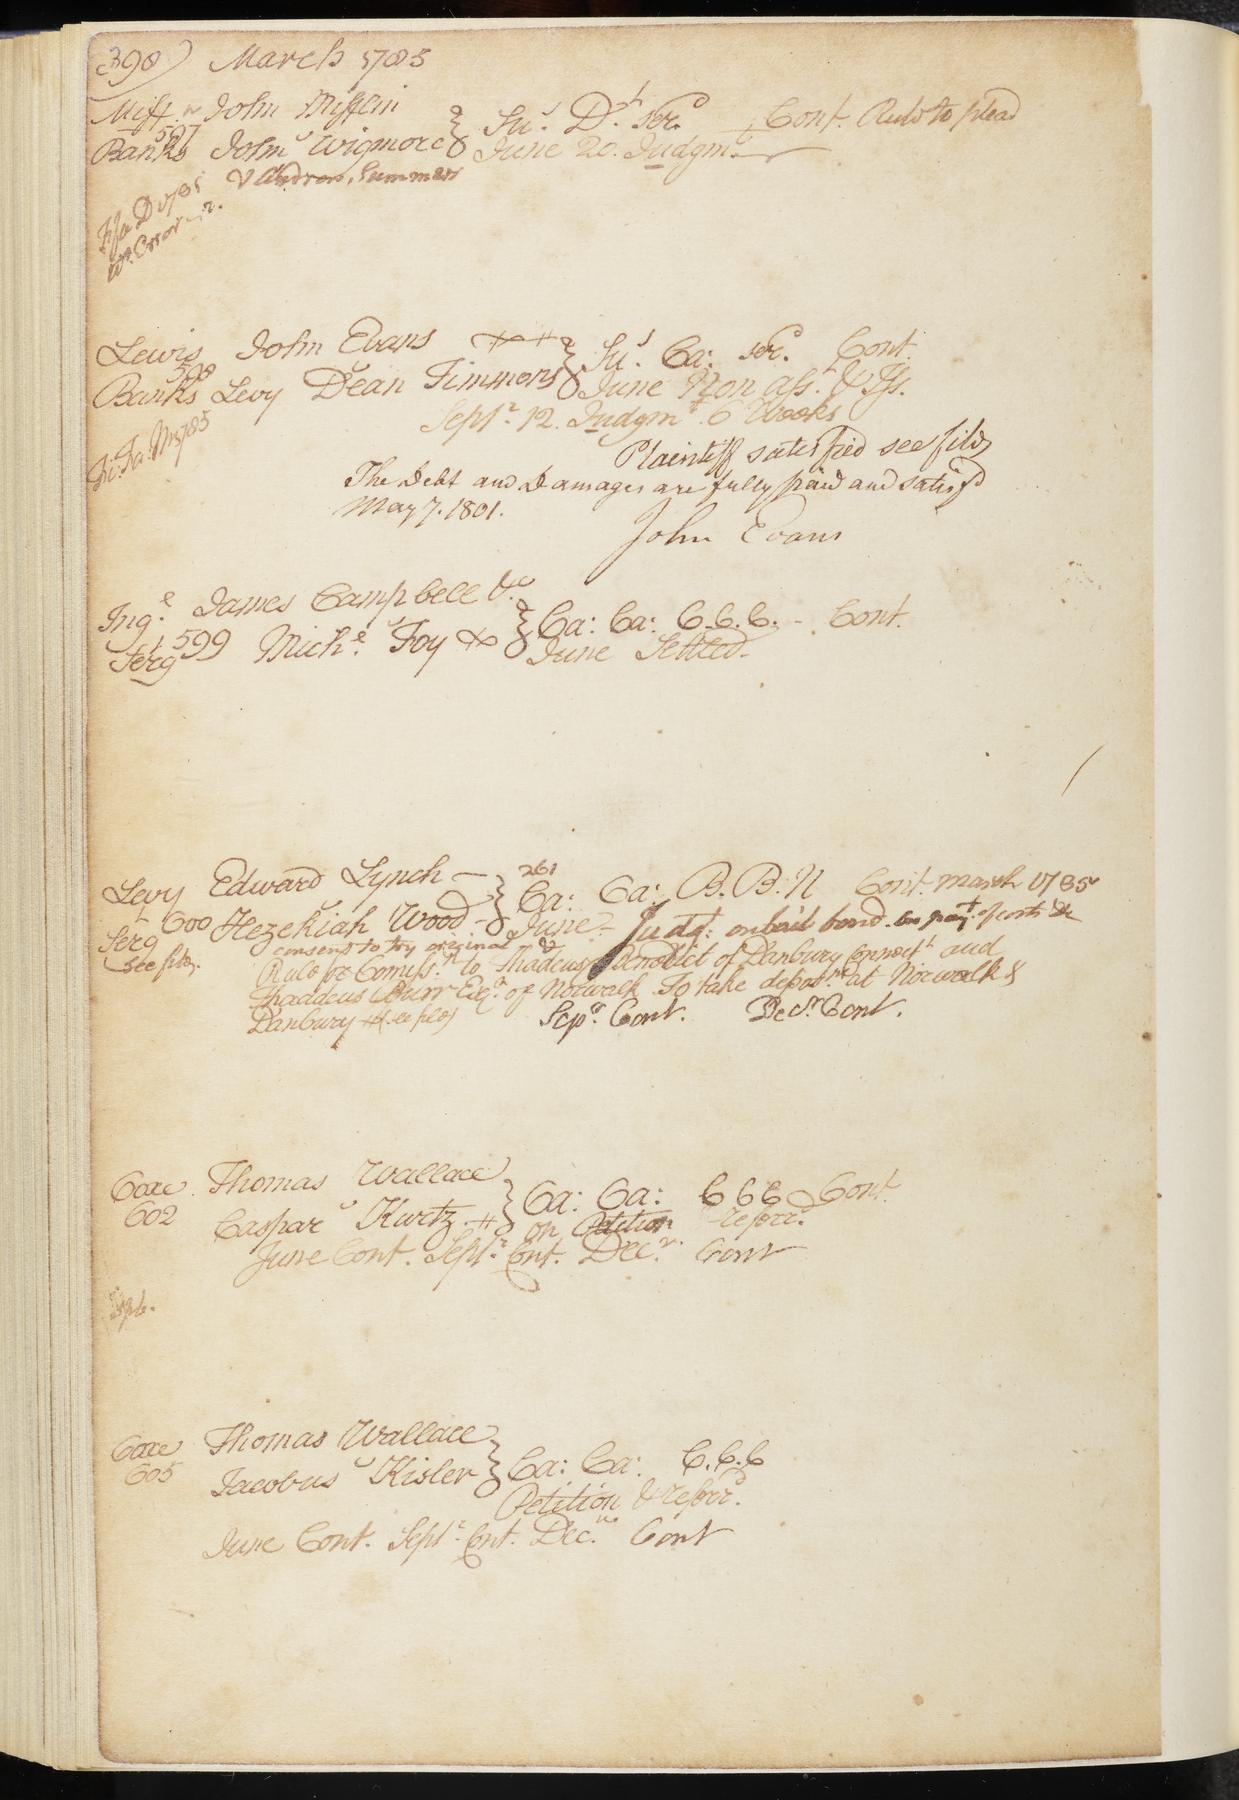 398) March 1785
Miff. John Mifflin } Su.s D.t ser.d Cont. Rule to plead
597
Banks John Wigmore June 20. Judgm.
& Andrew Summers
Fi fa D 1785
W. Error
Lewis John Evans } Su.s Ca: ser.d Cont.
598
Banks Levy Dean Timmons June Non ass.t & Iss.
Sept.r 12. Judgm.t 6 Weeks
Fi. Fa. M 1785
Plaintiff satisfied see filed
The Debt and Damages are fully paid and satisf.d
May 7. 1801.
John Evans
Ing.l James Campbell &c } Ca: Ca: C.C.C. - Cont.
Serg 599 Mich.l Foy June Settled
261
Levy Edward Lynch } Ca: Ca: B.B.N Cont. March 1785
600 Hezekiah Wood June Judg.t on bail bond. on pay.t of costs &c
Serg consent to try original &
See file. Rule for Comiss.n to Thadeus Benedict of Danbury Connect.t and
Thaddeus Burr Esq.r of Norwalk To take depos.ns at Norwalk &
Danbury Sep.r Cont. Dec.r Cont.
Coxe Thomas Wallace } Ca: Ca: C C C Cont.
602 Caspar Kurtz on Petition referr.d
June Cont. Sept.r Cont. Dec.r Cont
Coxe Thomas Wallace } Ca: Ca: C.C.C
605 Jacobus Kisler
Petition & referr.d
June Cont. Sept.r Cont. Dec.r Cont